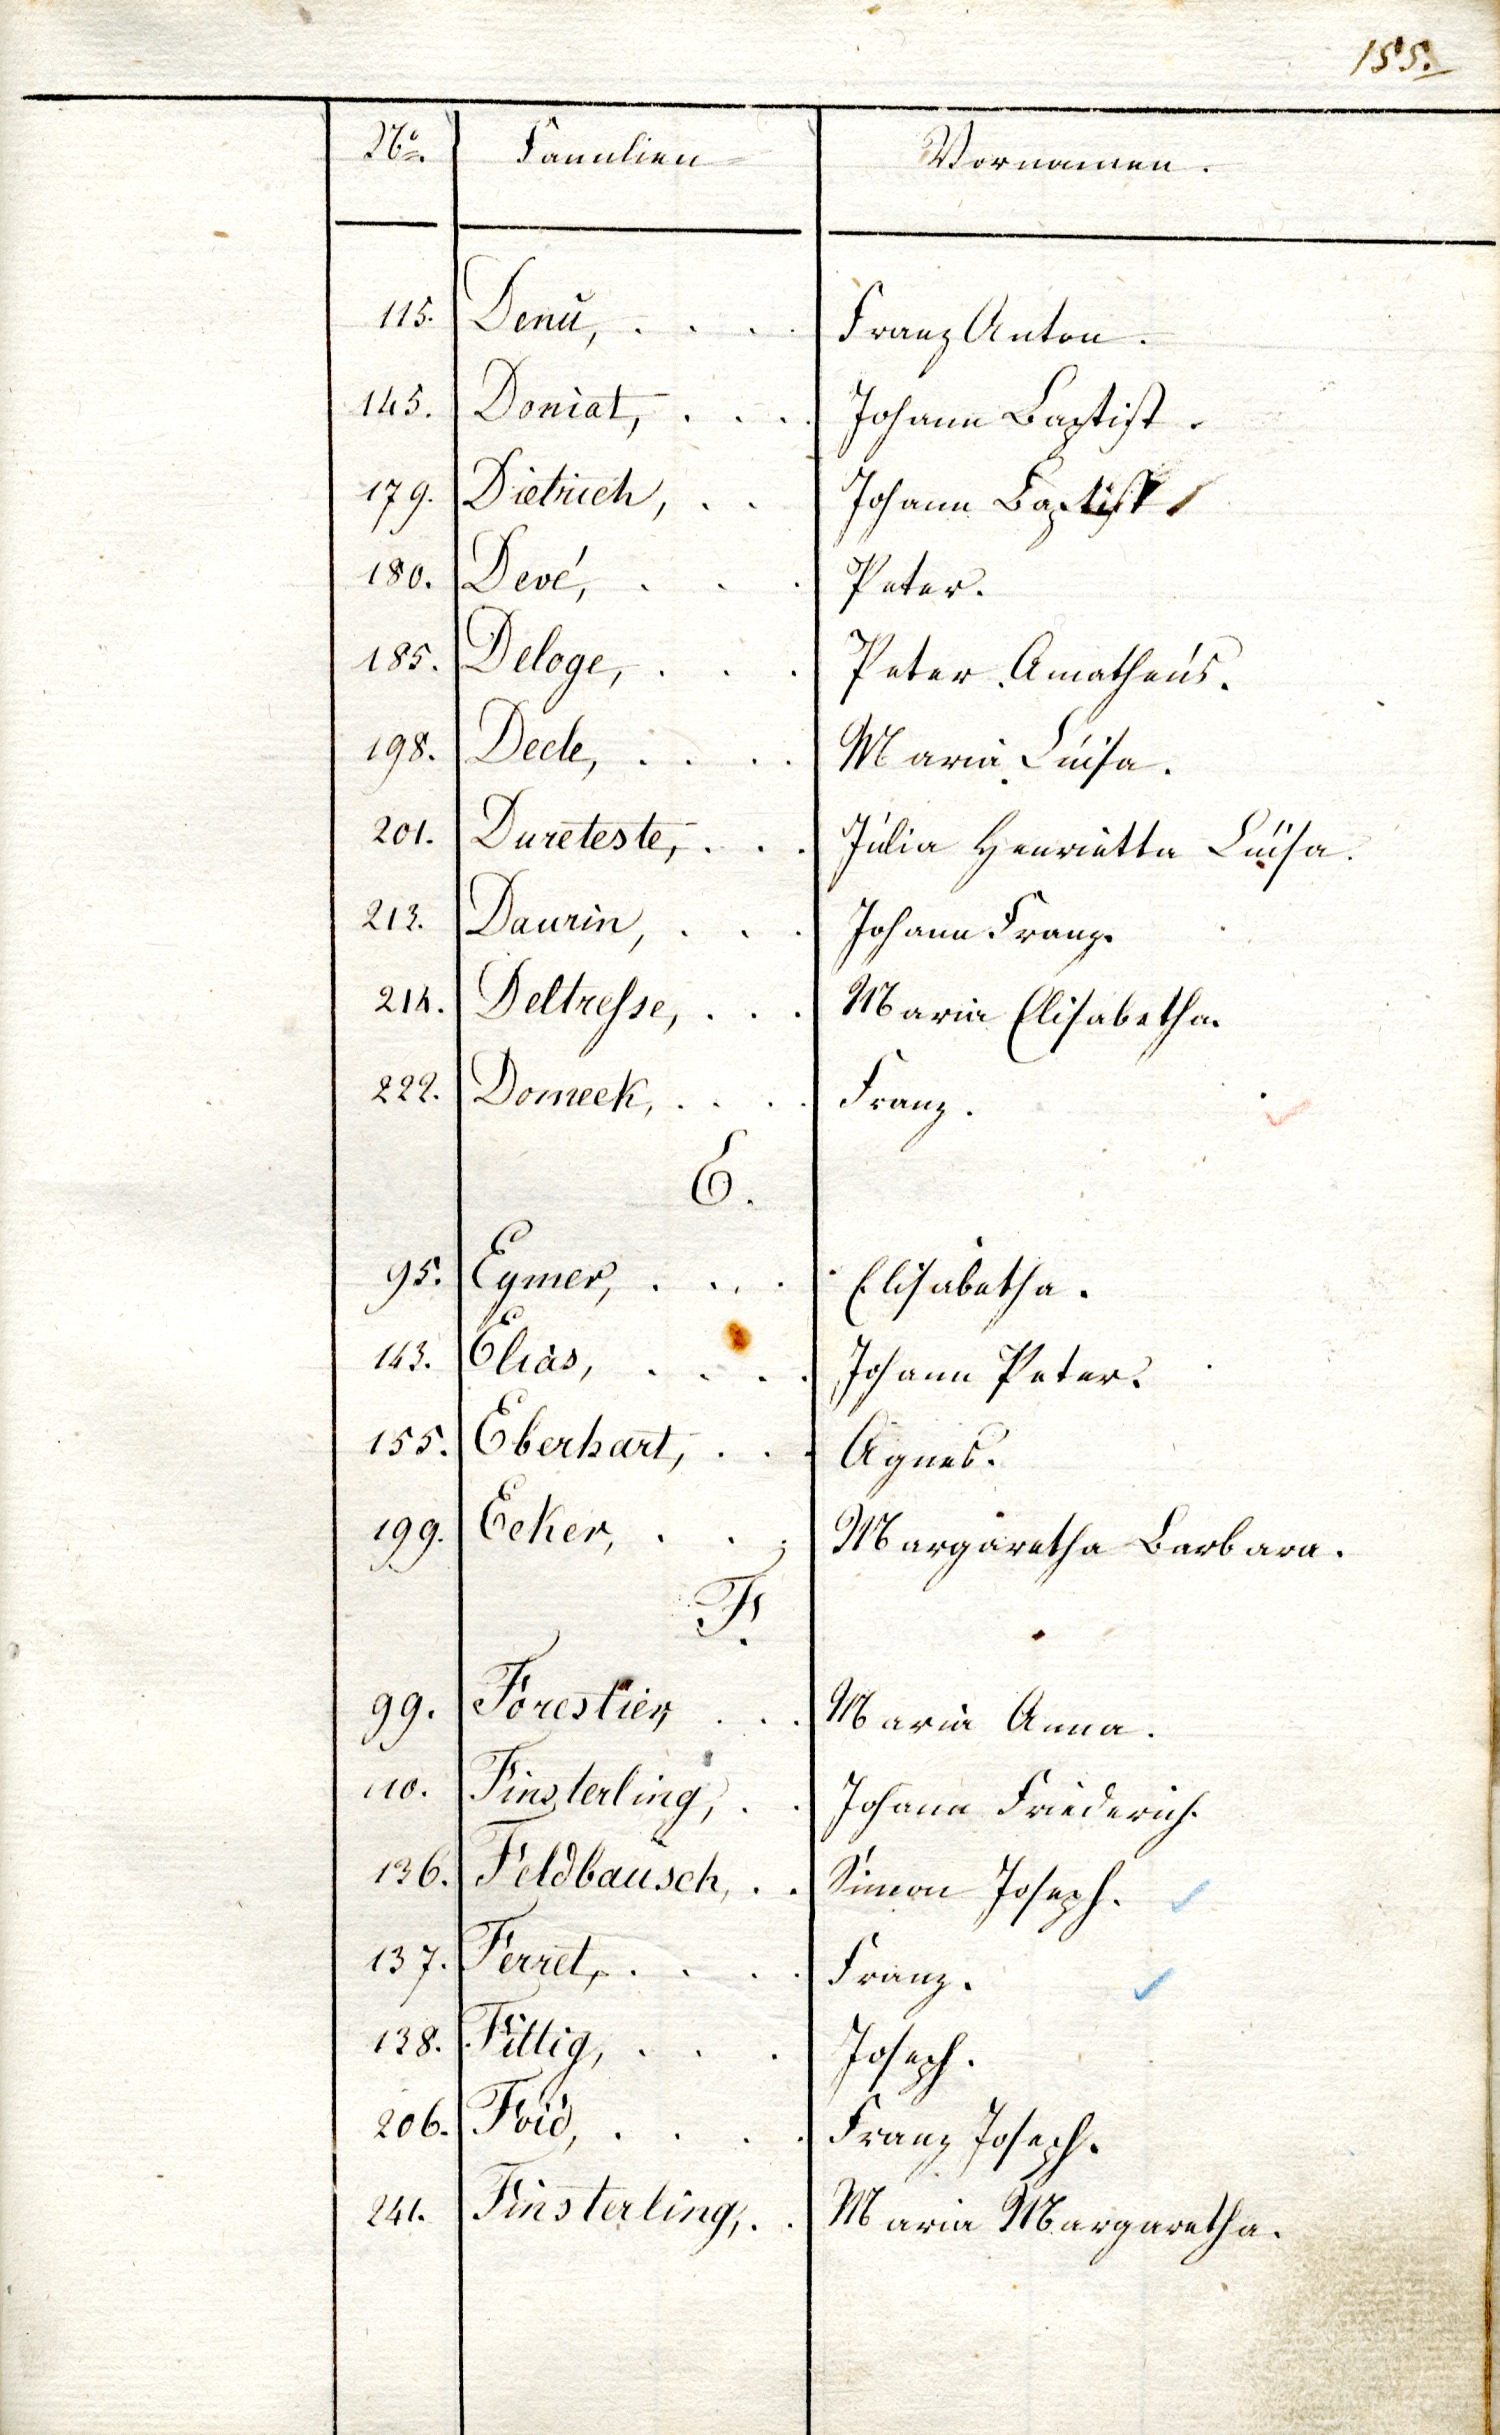 155.
No. Familien= Vornamen.
115. Denŭ, . . . . Franz Anton.
145. Doniat, . . . . Johann Baptist.
179. Dietrich, . . Johann Baptist
180. Devé, . . . Peter.
185. Deloge, . . . Peter Amatheus.
198. Decle, . . . . Maria Luisa.
201. Dureteste, . . . Julia Henrietta Luisa.
213. Daurin, . . . Johann Franz.
214. Deltresse, . . . Maria Elisabetha.
222. Domeck, . . . . Franz.
E.
95. Eymer, . . . . Elisabetha.
143. Elias, . . . . Johann Peter.
155. Eberhart, . . . Agnes.
199. Ecker, . . . Margaretha Barbara.
F.
99. Forestier, . . . Maria Anna.
110. Finsterling, . . Johann Friederich.
136. Feldbaŭsch, . . Simon Joseph.
137. Ferret, . . . . Franz.
138. Fittig, . . . Joseph.
206. Foid, . . . . Franz Joseph.
241. Finsterling, . . Maria Margaretha.